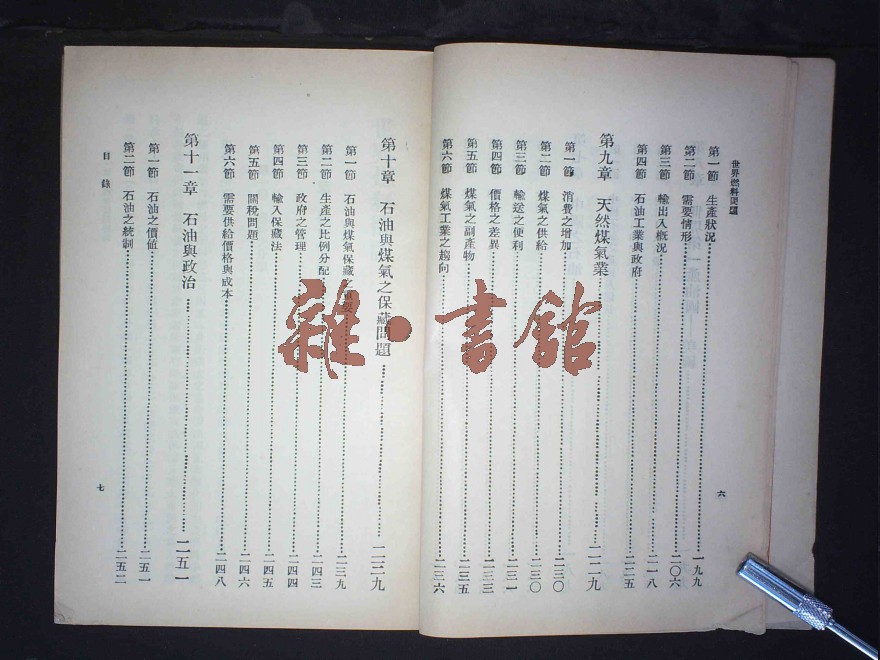 世界燃料問題
第一節 生產狀況……一九九
第二節 需要情形……二〇六
第三節 輸出入概況……二一八
第四節 石油工業與政府……二二五
第九章 天然煤氣業……二二九
第一節 消費之增加……二三〇
第二節 煤氣之供給……二三〇
第三節 輸送之便利……二三一
第四節 價格之差異……二三三
第五節 煤氣之副產物……二三五
第六節 煤氣工業之趨向……二三六
六
第十章 石油與煤氣之保藏問題……二三九
第一節 石油與煤氣保藏之重要……二三九
第二節 生產之比例分配……二四三
第三節 政府之管理……二四四
第四節 輸入保藏法……二四五
第五節 關稅問題……二四六
第六節 需要供給價格與成本……二四八
第十一章 石油與政治……二五一
第一節 石油之價值……二五一
第二節 石油之統制……二五二
目錄
七
雜·書館